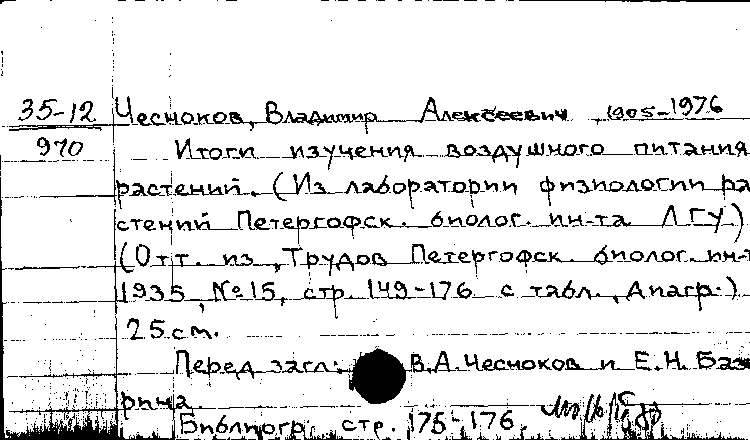 35-12 Чесноков, Владимир Алексеевич 1905-1976
970 Итоги изучения воздушного питания
растений. (Из лаборатории физиологии ра
стений Петергофск. биолог. ин-та ЛГУ)
(Отт. из „Трудов Петергофск. биолог. ин-т
1935, №15, стр. 149-176 с табл., диагр.)
25 см.
Перед загл: В.А.Чесноков и Е.Н. Баз
рина.
Библиогр. стр. 175-176.